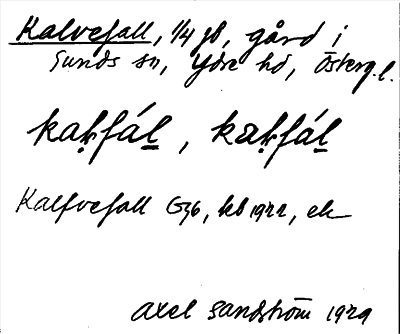 Kalvefall, 1/4 jb, gård i
Sunds sn, Ydre hd, Österg.l.
kaḷfáḻ, kæḷfáḻ
Kalfvefall G36, kb 1922, ek
Axel Sandström 1929